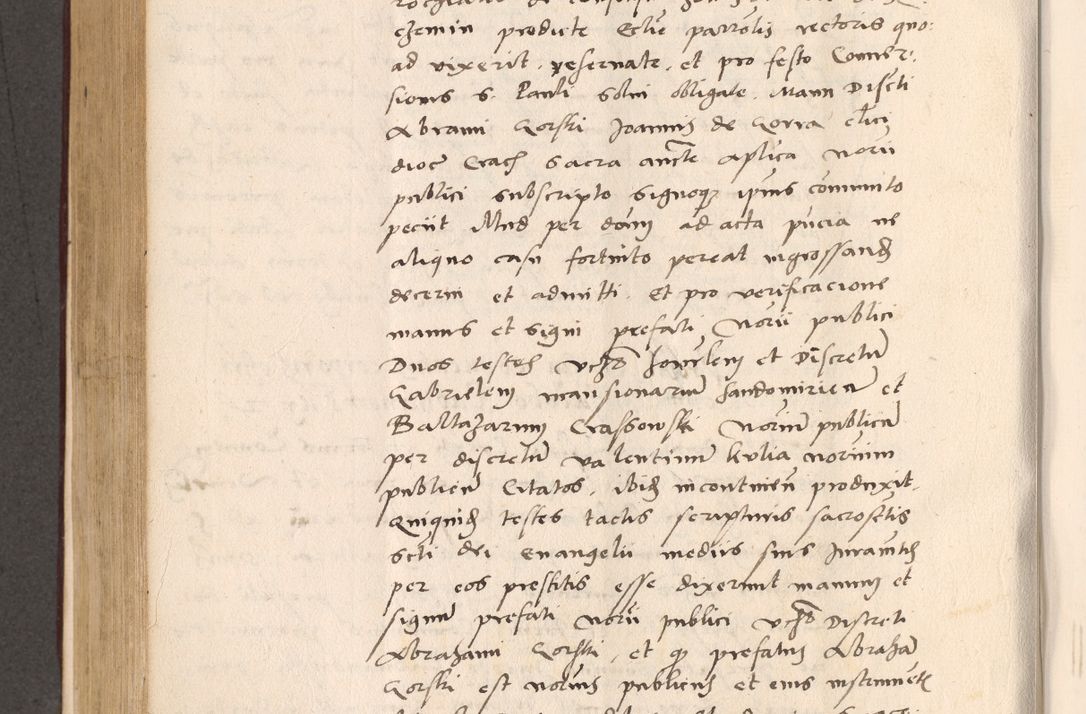 czemin predicte Eclie parrolis rectoris quo:
ad vixerit, reservate, et pro festo Conver:
sionis S. Pauli solvi obligate. Manu Discti
Abrami Gorski Joannis de Gorra clici
dioc Crach sacra aucte aplica norii
publici subscripto signoq ipius communito
peciit Illud per domi ad acta pucia ne
aliquo casu fortuito pereat ingrossand
decerni et admitti. Et pro verificacione
manus et signi prefati Norii publici
Duos testes vc et Discretu
Gabrielem mansionariu Sandomirien et
Baltazarum Crassowski Noriu publicu
per discretu valentinu kulia noriuim
publicu Citatos, ibid incontinen produxit.
Quiquid testes tactis scripturis sacrosctis
scti dei Evangelii mediis suis Juramtis
per eos prestitis esse dixerunt manum et
signu prefati norii publici Discreti
Abrahami Gorski, et q prefatus Abraha
Gorski est norius publicus et eius instrumet